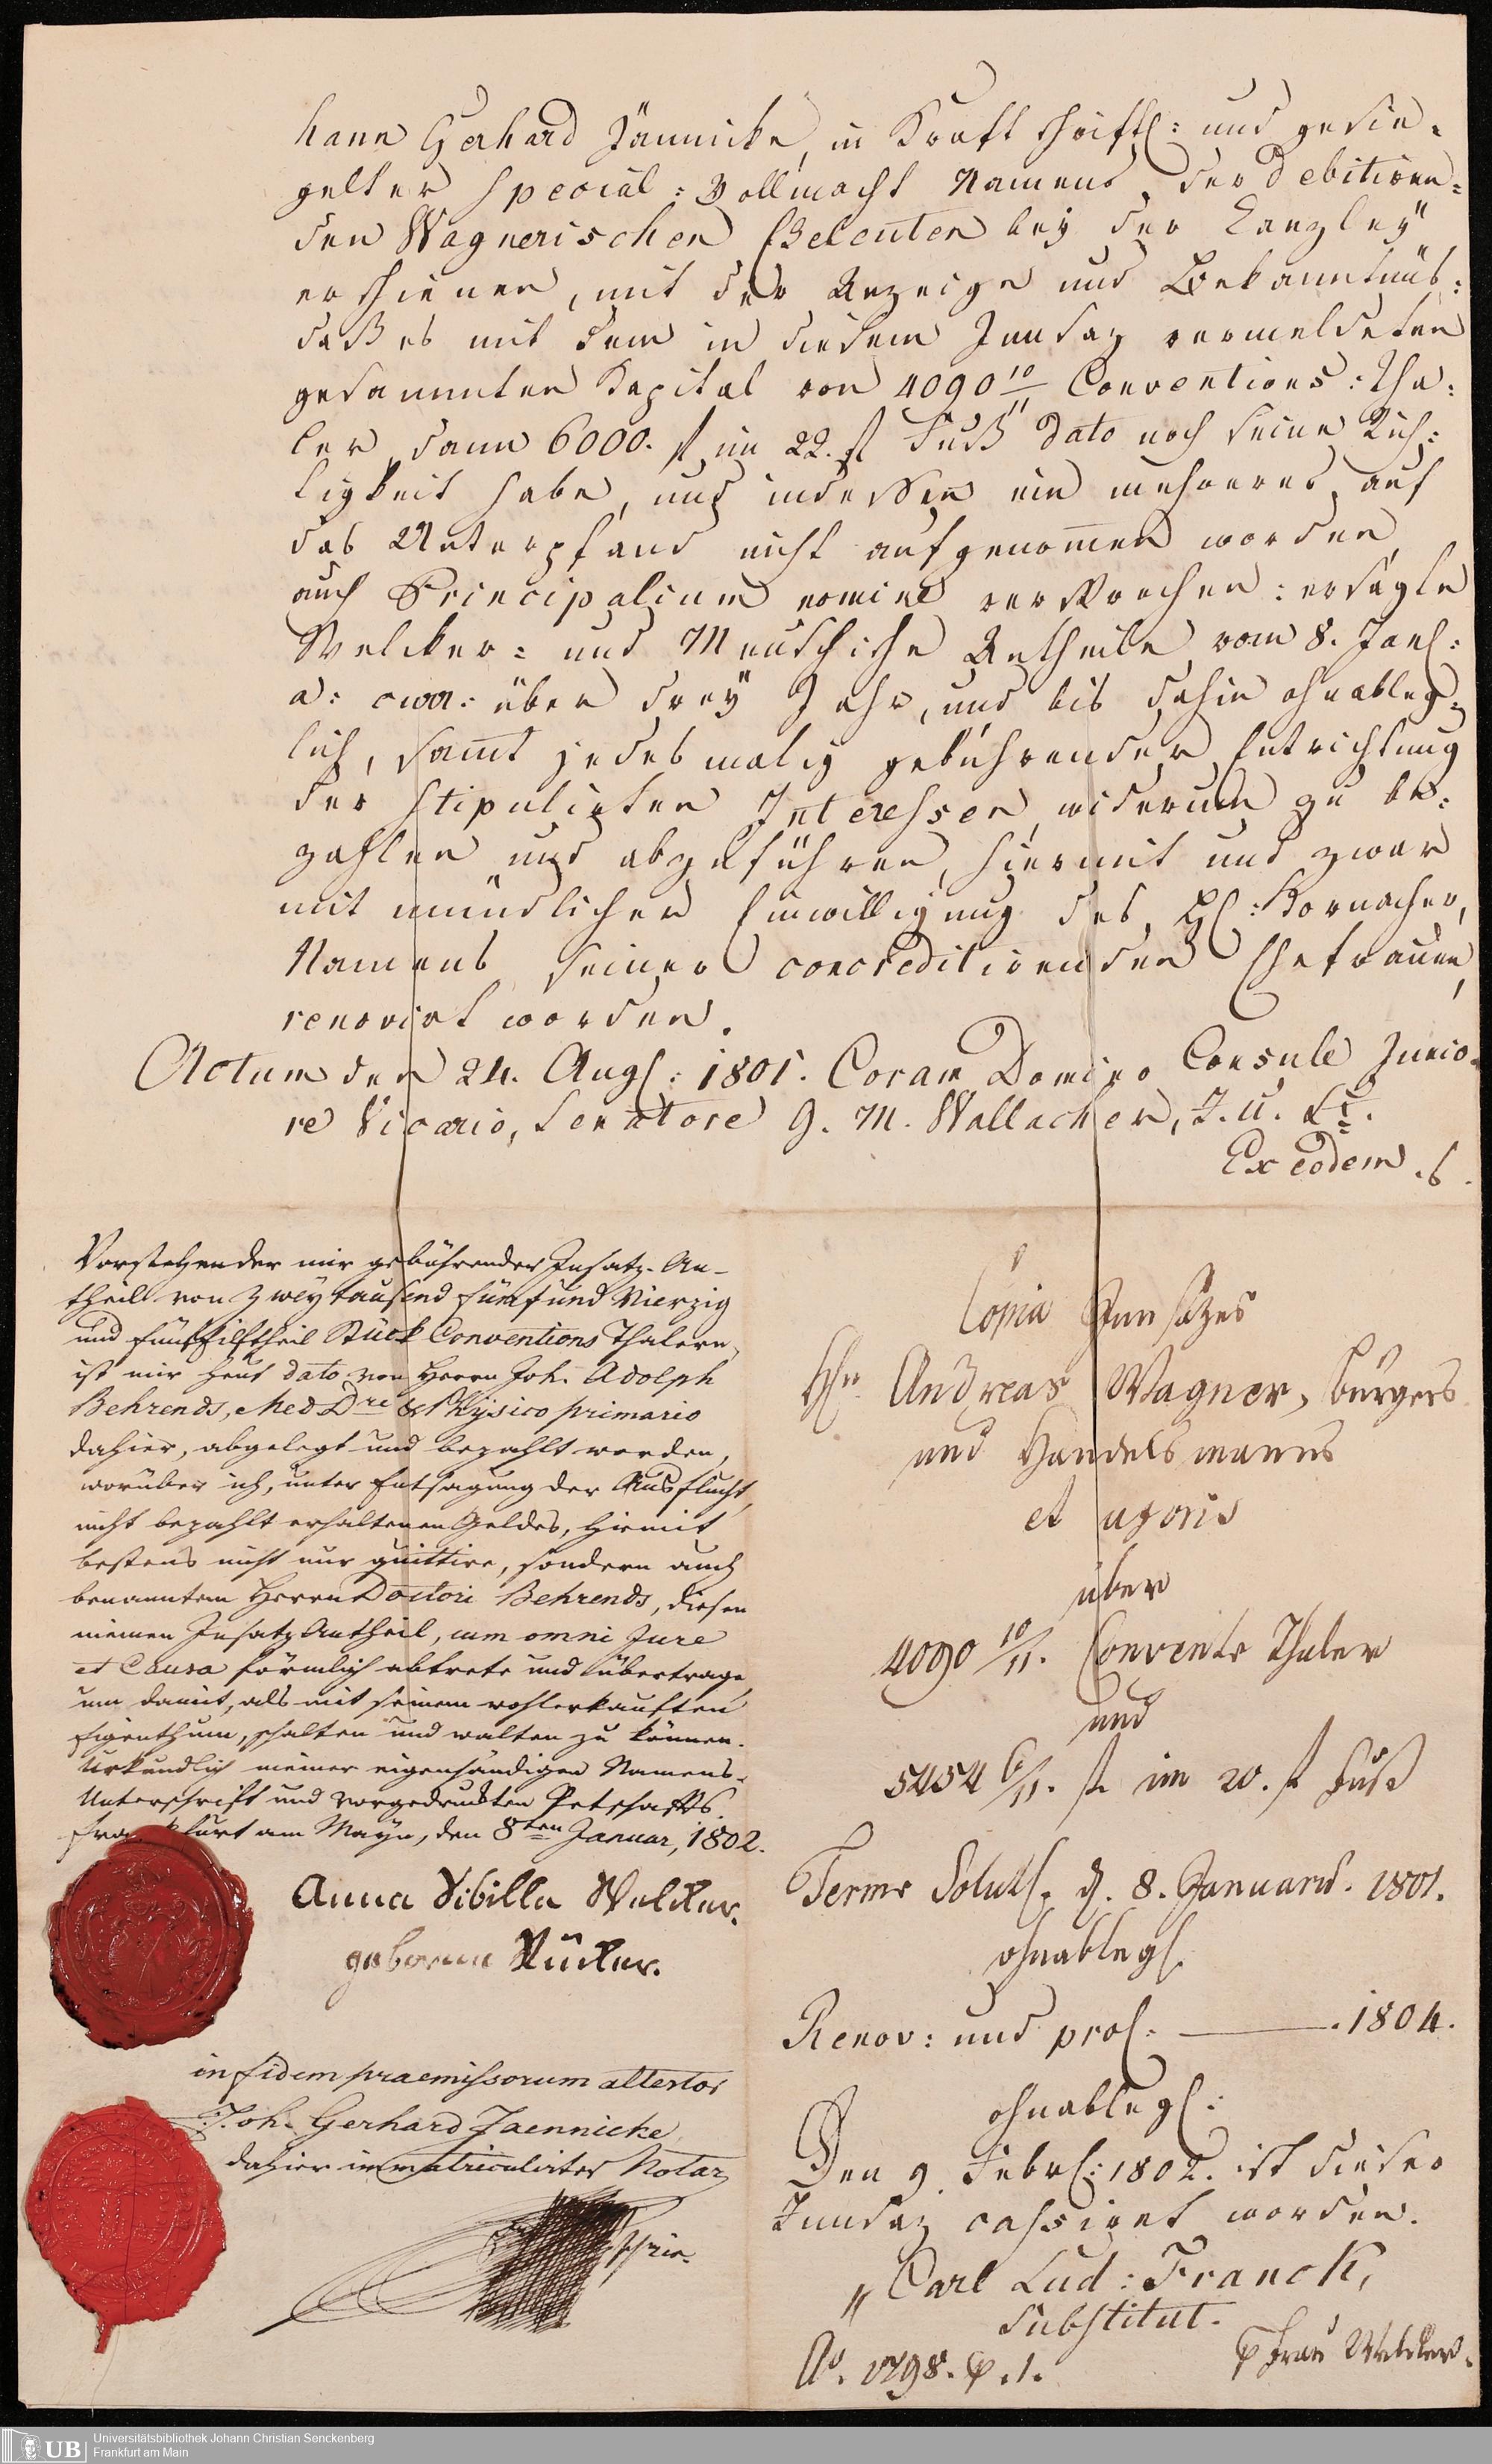 hann Gerhard Jännicke, in Kraft schriftl: und gesie-
gelter Special-Vollmacht Namens der debitiren-
den Wagnerischen Eheleuten bey der Canzley
erschienen, mit der Anzeige und Bekanntnüs:
daß es mit dem in diesem Innsaz vermeldeten
gesammten Kapital von 4090 10/11 Conventions-Tha-
ler, dann 6000. fl im 22. fl Fuß dato noch seine Rich-
tigkeit habe, und indessen ein mehreres auf
das Unterpfand nicht aufgenom̅en worden,
auch Principalium nomine versprochen: ersagte
Welcker- und Meuschische Antheile vom 8. Janl:
a: curr: über drey Jahr, und bis dahin ohnableg-
lich, sam̅t jedesmalig gebührender Entrichtung
der stipulirten Interessen, widerum zu be-
zahlen und abzuführen, hiermit und zwar
mit mündlicher Einwilligung des Hl: Kornacher,
Namens seiner concreditirenden Ehefrauen,
renovirt worden.
Actum den 24. Augl: 1801. Coram Domino Consule Junio-
re Vicario, Senatore G. M. Wallacher, J. U. Lt.
Ex eodem
Vorstehender mir gebührender Insatz-An-
theil von Zweytausend fünfundvierzig
und fünf Eilftheil Stück Conventions Thalern,
ist mir heut dato von Herrn Joh. Adolph
Behrends, Med Dre & Physico primario
dahier, abgelegt und bezahlt worden,
worüber ich, unter Entsagung der Ausflucht,
nicht bezahlt erhaltenen Geldes, hiemit
bestens nicht nur quittire, sondern auch
benanntem Herrn Doctori Behrends, diesen
meinen Insatz Antheil, cum omni Jure
et Causa förmlich abtrete und übertrage,
um damit, als mit seinem wohlerkauften
Eigenthum, schalten und walten zu können.
Urkundlich meiner eigenhändigen Namens-
Unterschrift und vorgedruckten Petschafts.
Frankfurt am Mayn, den 8ten Januar, 1802.
Anna Sibilla Welcker.
geborne Rücker.
in fidem praemissorum attestor
Joh. Gerhard Jaennicke
dahier immatriculirter Notar
Copia Innsazes
Hn. Andreas Wagner, Burgers
und Handelsmanns
et uxoris
über
4090 10/11. Convents Thaler
und
5454 6/11. fl im 20. fl Fuß
Term. Solutl. d. 8. Januarii. 1801.
ohnablegl.
Renov: und prol: ——— 1804.
ohnablegl:
Den 9. Febrl: 1802. ist dieser
Innsaz cassiret worden.
Carl Lud: Franck,
Substitut.
Ao. 1798. p. 1.
p Frau Welcker.
UB
Universitätsbibliothek Johann Christian Senckenberg
Frankfurt am Main